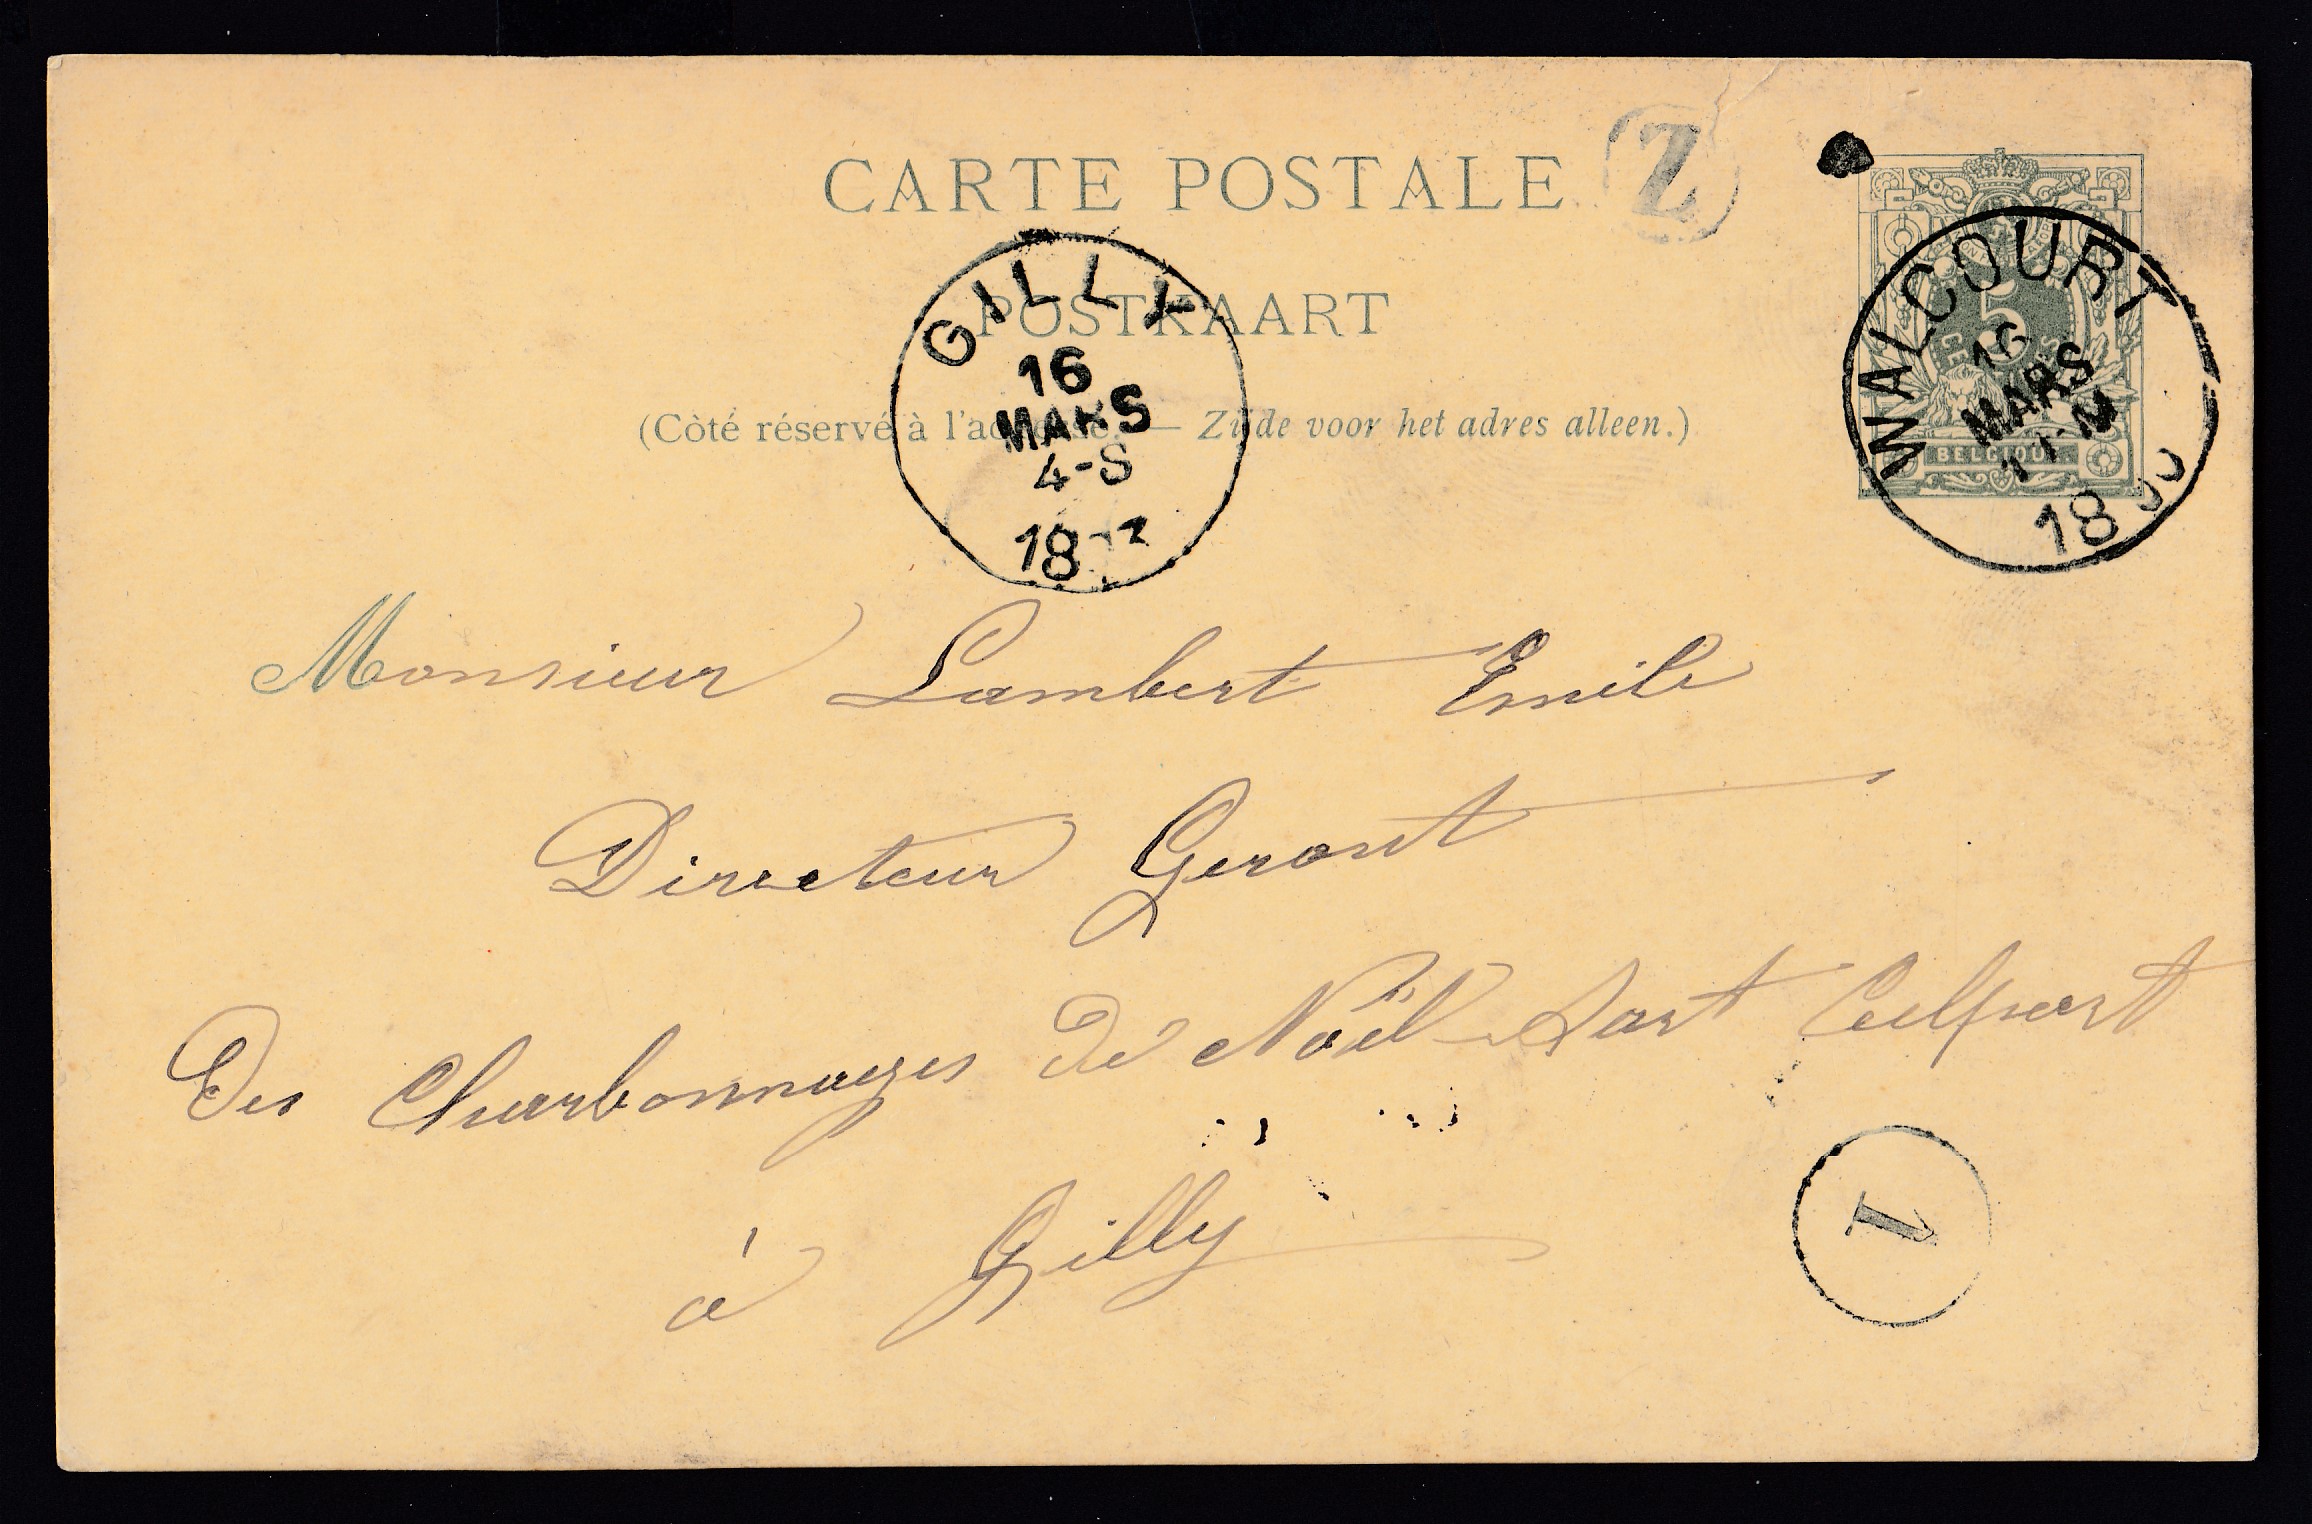 CARTE POSTALE
Z
POSTKAART
(Côté réservé à l'adresse. — Zijde voor het adres alleen.)
GILLY
16
MARS
4-S
18
5
BELGIQUE
WALCOURT
16
MARS
11-M
18
Monsieur Lambert Emile
Directeur Gerant
Des Charbonnages de Noël Sart Culpart
à Gilly
1